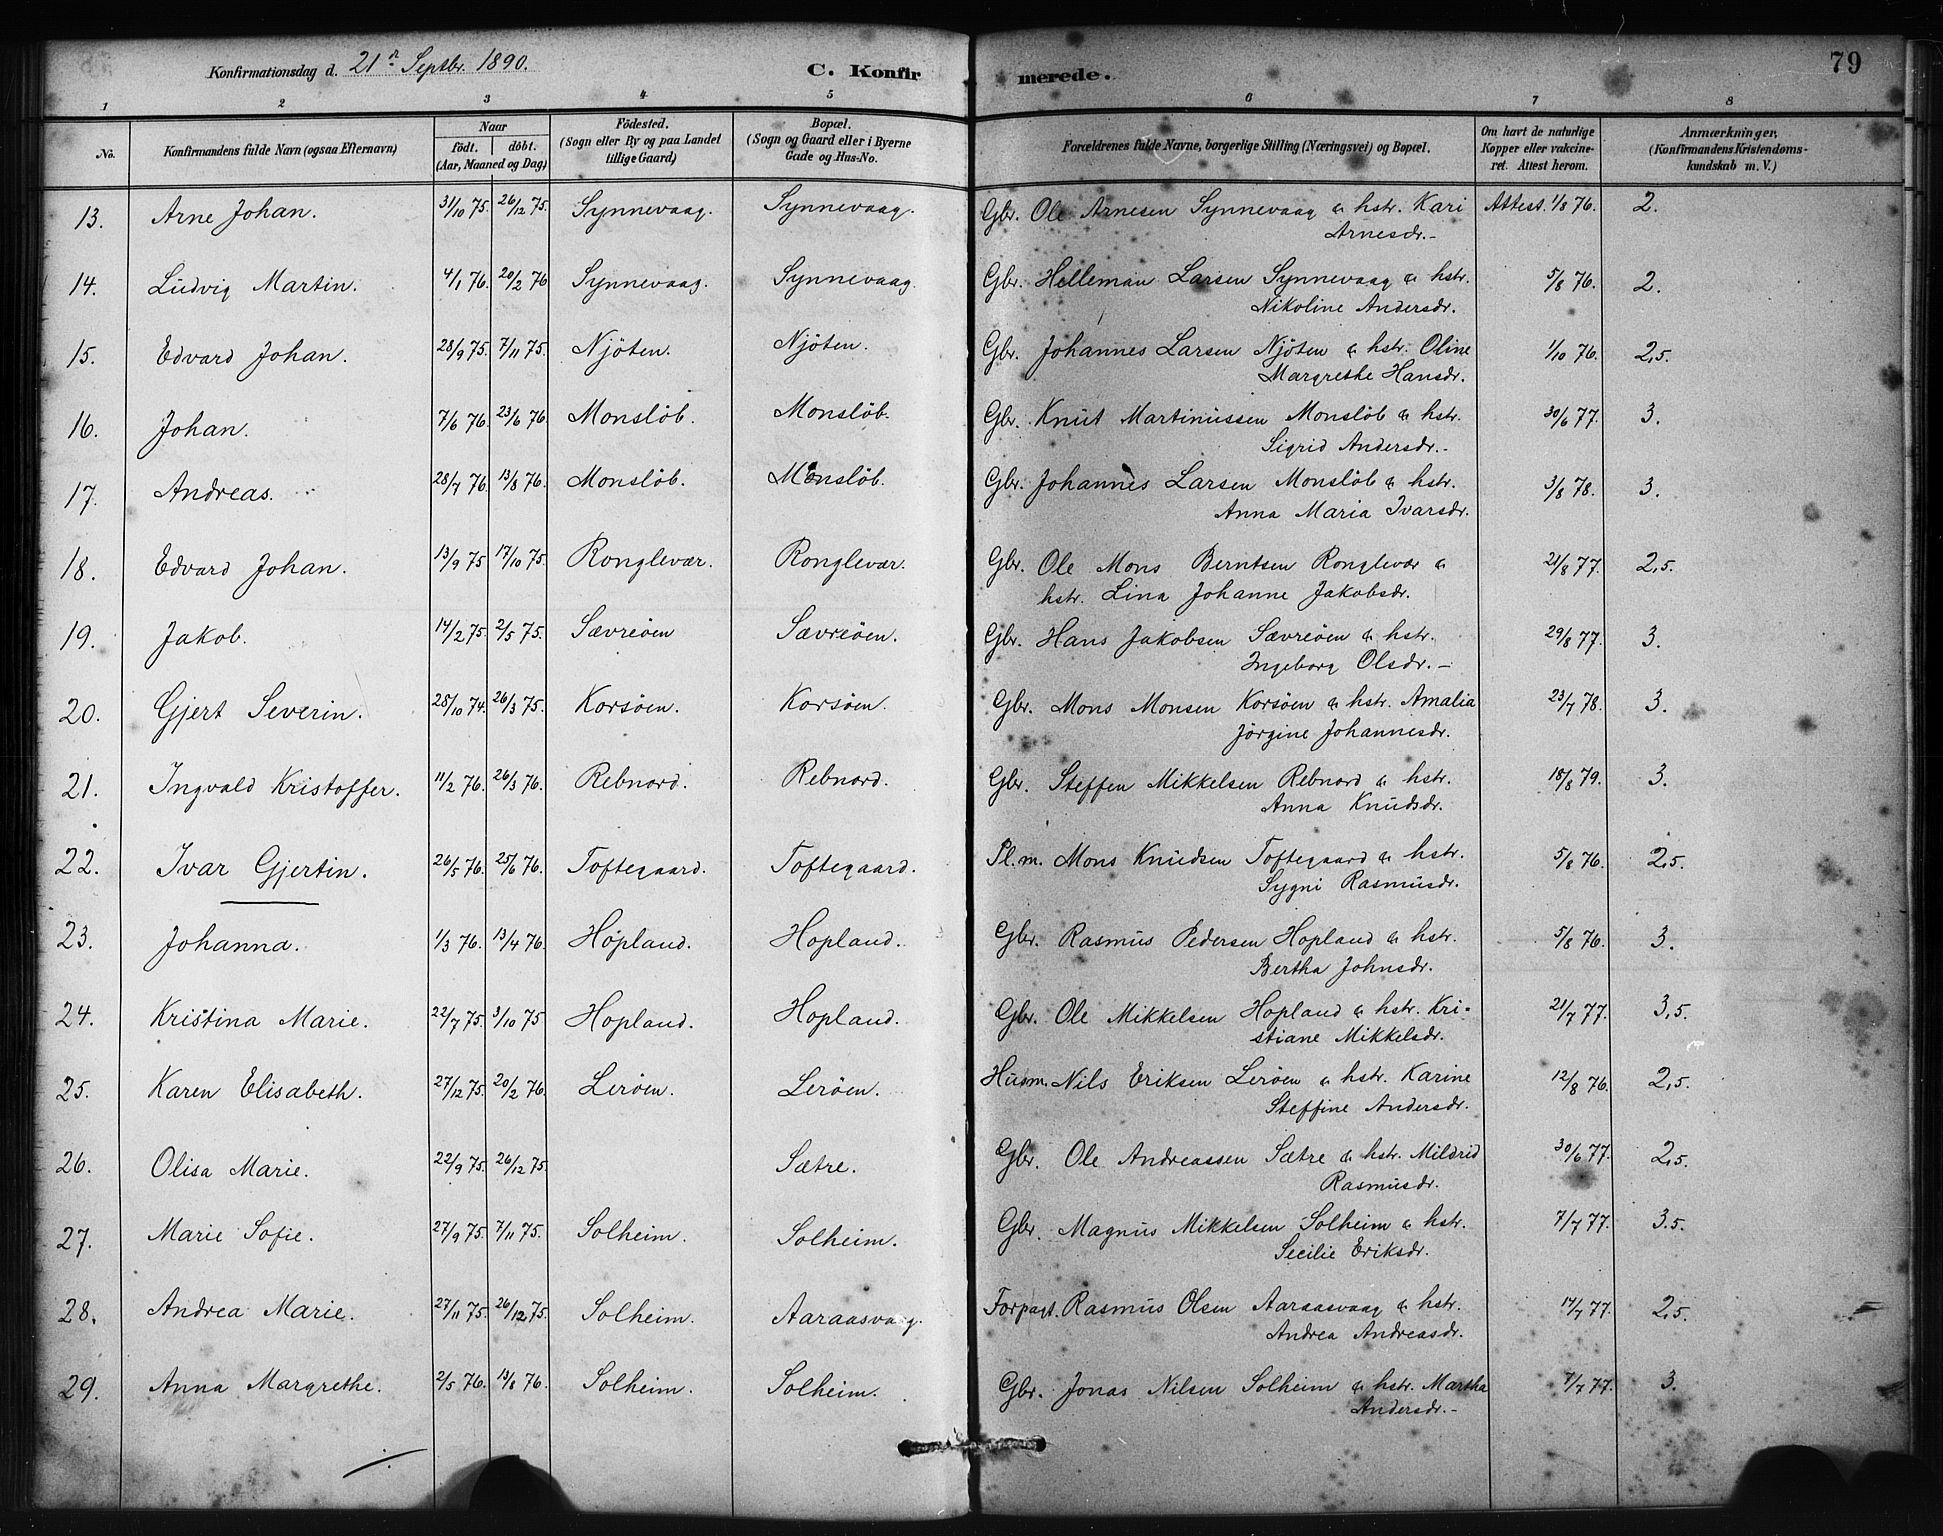 Konfirmationsdag d. 21de Septbr. 1890. C. Konfirmerede. 79
1 2 3 4 5 6 7 8
No. Konfirmandens fulde Navn (ogsaa Efternavn) Naar födt. döbt. (Aar, Maaned og Dag) Födested. (Sogn eller By og paa Landet tillige Gaard) Bopæl. (Sogn og Gaard eller i Byerne Gade og Hus-No. Forældrenes fulde Navne, borgerlige Stilling (Næringsvei) og Bopæl. Om havt de naturlige Kopper eller vakcineret. Attest herom. Anmærkninger, (Konfirmandens Kristendomskundskab m. V.)
13. Arne Johan. 31/10 75. 26/12 75. Synnevaag. Synnevaag. Gbr. Ole Arnesen Synnevaag & hstr. Kari Attest. 1/8 76. 2.
Arnesdr.-
14. Ludvig Martin. 4/1 76. 20/2 76 Synnevaag. Synnevaag. Gbr. Helleman Larsen Synnevaag & hstr. 5/8 76. 2.
Nikoline Andersdr.
15. Edvard Johan. 28/9 75. 7/11 75. Njöten. Njöten. Gbr. Johannes Larsen Njöten & hstr. Oline 1/10 76. 2,5.
Margrethe Hansdr.
16. Johan. 7/6 76. 23/6 76. Monslöb. Monslöb. Gbr. Knut Martinussen Monslöb & hstr. 30/6 77. 3.
Sigrid Andersdr.-
17. Andreas. 28/7 76. 13/8 76. Monslöb. Monslöb. Gbr. Johannes Larsen Monslöb & hstr. 3/8 78. 3.
Anna Maria Ivarsdr.
18. Edvard Johan. 13/9 75. 17/10 75. Ronglevær. Ronglevær. Gbr. Ole Mons Berntsen Ronglevær & 21/8 77. 2,5.
hstr. Lina Johanne Jakobsdr.
19. Jakob. 14/2 75. 2/5 75. Sævreöen Sævreöen. Gbr. Hans Jakobsen Sævreöen & hstr. 29/8 77. 3.
Ingeborg Olsdr.-
20. Gjert Severin. 28/10 74. 26/3 75. Korsöen. Korsöen. Gbr. Mons Monsen Korsöen & hstr. Amalia 23/7 78. 3.
Jörgine Johannesdr.
21. Ingvald Kristoffer. 11/2 76. 26/3 76. Rebnord. Rebnord. Gbr. Steffen Mikkelsen Rebnord & hstr. 18/8 79. 3.
Anna Knudsdr.
22. Ivar Gjertin. 26/5 76. 25/6 76. Toftegaard. Toftegaard. Pl.m. Mons Knudsen Toftegaard & hstr. 5/8 76. 2,5.
Sygni Rasmusdr.
23. Johanna. 1/3 76. 13/4 76. Hopland. Hopland. Gbr. Rasmus Pedersen Hopland & hstr. 5/8 76. 3.
Bertha Johnsdr.
24. Kristina Marie. 22/7 75. 3/10 75 Hopland. Hopland. Gbr. Ole Mikkelsen Hopland & hstr. Kri- 21/7 77. 3,5.
stiane Mikkelsdr.
25. Karen Elisabeth. 27/12 75. 20/2 76. Leröen. Leröen. Husm. Nils Eriksen Leröen & hstr. Karine 12/8 76. 2,5.
Steffine Andersdr.
26. Olisa Marie. 22/9 75. 26/12 75. Sætre. Gbr. Ole Andreassen Sætre & hstr. Mildrid 30/6 77. 2,5.
Rasmusdr.
27. Marie Sofie. 27/9 75. 7/11 75. Solheim. Solheim. Gbr. Magnus Mikkelsen Solheim & hstr. 7/7 77. 3.5.
Secilie Eriksdr.
28. Andrea Marie. 27/11 75. 26/12 75. Solheim. Aaraasvaag. Forpagt. Rasmus Olsen Aaraasvaag & hstr. 17/7 77. 2,5.
Andrea Andreasdr.
29. Anna Margrethe. 2/5 76. 13/8 76. Solheim. Solheim. Gbr. Jonas Nilsen Solheim & hstr. Martha 7/7 77. 3.
Andersdr.-